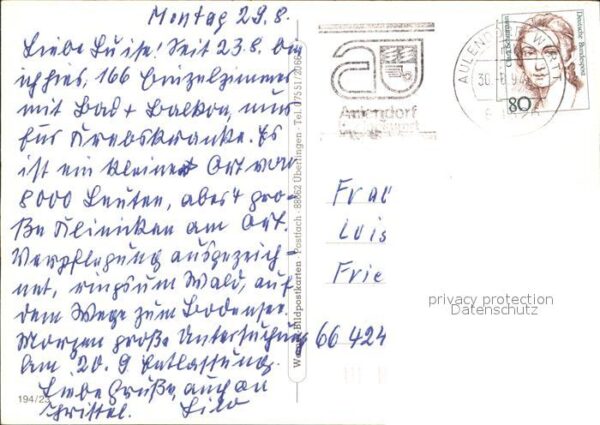 Montag 29.8.
Liebe Luise! Seit 23.8. bin
ich hier, 166 Einzelzimmer
mit Bad + Balkon, nur
für Krebskranke. Es
ist ein kleiner Ort von
8000 Leuten, aber 4 gro-
ße Kliniken am Ort.
Verpflegung ausgezeich-
net, ringsum Wald, auf
dem Wege zum Bodensee.
Morgen große Untersuchung
Am 20.9 Entlassung.
Liebe Grüße, auch an
Christel. Lilo
194/23
Bildpostkarten · Postfach · 88662 Überlingen · Tel. 07551/2066
au
Aulendorf
AULENDORF, WÜRTT
30.-8.94
Clara Schumann
Deutsche Bundespost
80
Frau
Luis
Frie
66 424
privacy protection
Datenschutz